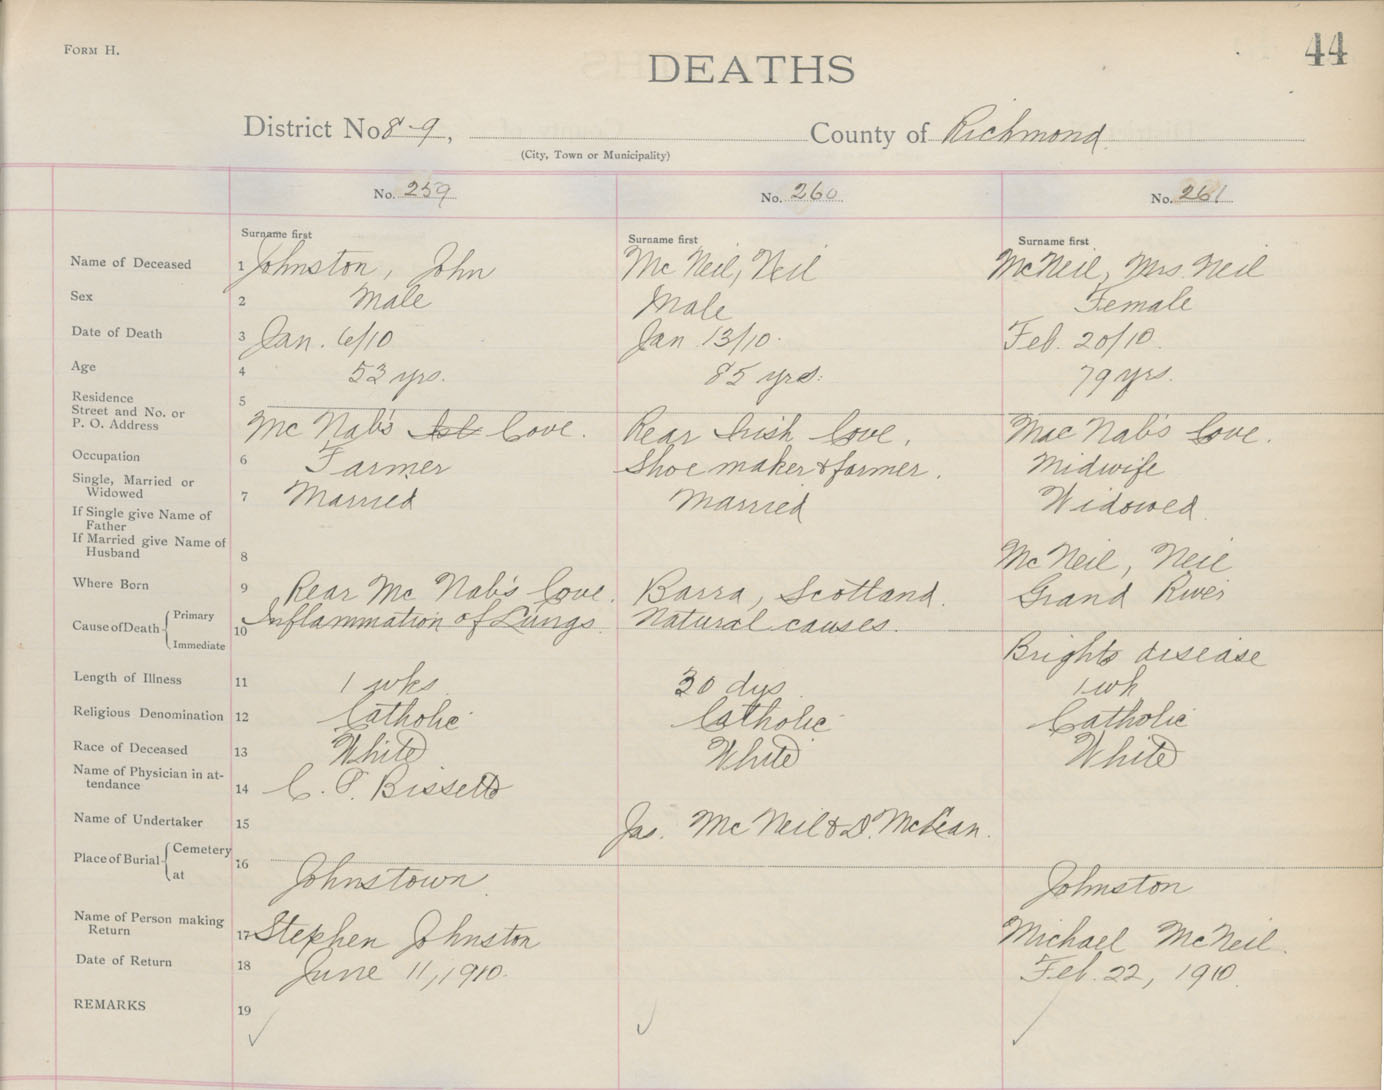 FORM H.
44
DEATHS
District No 8-9, County of Richmond
(City, Town or Municipality)
No. 259 No. 260 No. 261
Surname first Surname first Surname first
Name of Deceased 1 Johnston, John Mc Neil, Neil McNeil, Mrs. Neil
Sex 2 Male Male Female
Date of Death 3 Jan. 6/10 Jan 13/10. Feb. 20/10.
Age 4 53 yrs. 85 yrs. 79 yrs.
Residence
Street and No. or
P. O. Address 5 Mc Nab's Cove. Rear Irish Cove. Mac Nab's Cove.
Occupation 6 Farmer Shoe maker & farmer. Midwife
Single, Married or
Widowed 7 Married Married Widowed
If Single give Name of
Father
If Married give Name of
Husband 8 Mc Neil, Neil
Where Born 9 Rear Mc Nab's Cove. Barra, Scotland. Grand River
Cause of Death Primary 10 Inflammation of Lungs. Natural causes.
Immediate Brights disease
Length of Illness 11 1 wks. 30 dys 1 wk
Religious Denomination 12 Catholic Catholic Catholic
Race of Deceased 13 White White White
Name of Physician in at-
tendance 14 C. P. Bissett
Name of Undertaker 15 Jas. McNeil & D.
Place of Burial Cemetery
at 16 Johnstown Johnston
Name of Person making
Return 17 Stephen Johnston Michael McNeil.
Date of Return 18 June 11, 1910. Feb. 22, 1910.
REMARKS 19